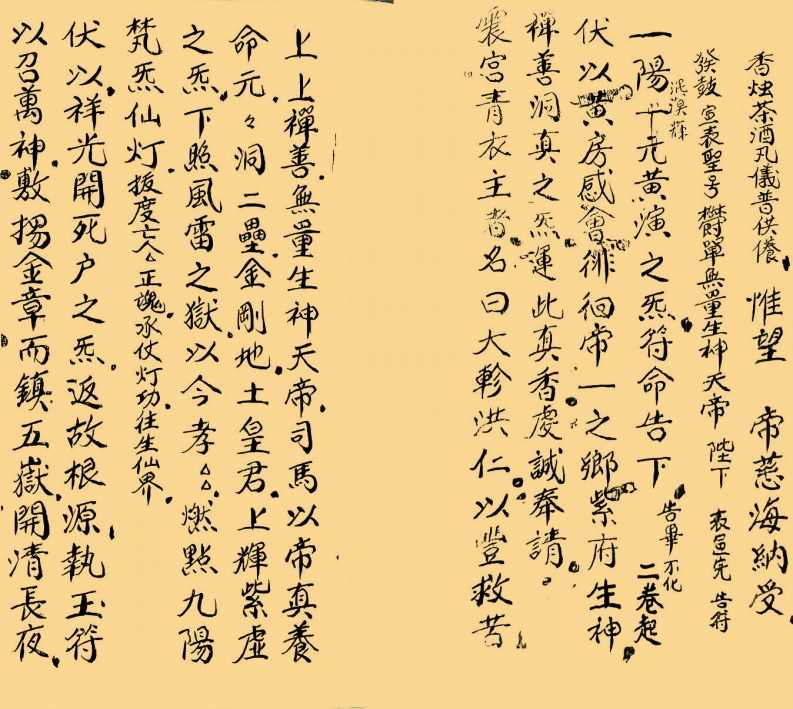 香炷茶酒凡儀普供養惟望 帝慈海納受
發鼓宣表聖号欝單無量生神天帝 陛下 表宣先告符
一陽十元黄演之炁符命告下 告畢不化 二卷起
伏以黄房感會徘徊帝一之鄉紫府生神
禪善洞真之炁運此真香虔誠奉請
震宮青衣主者名曰大軫洪仁以豐救苦
上上禪善無量生神天帝司馬以帝真養
命元々洞二壘金剛地土皇君上輝紫虛
之炁下照風雷之獄以今孝△△燃點九陽
梵炁仙灯拔度亡人△正魂承仗灯功往生仙界
伏以祥光開死户之炁返故根源執玉符
以召萬神敷揚金章而鎮五嶽開清長夜